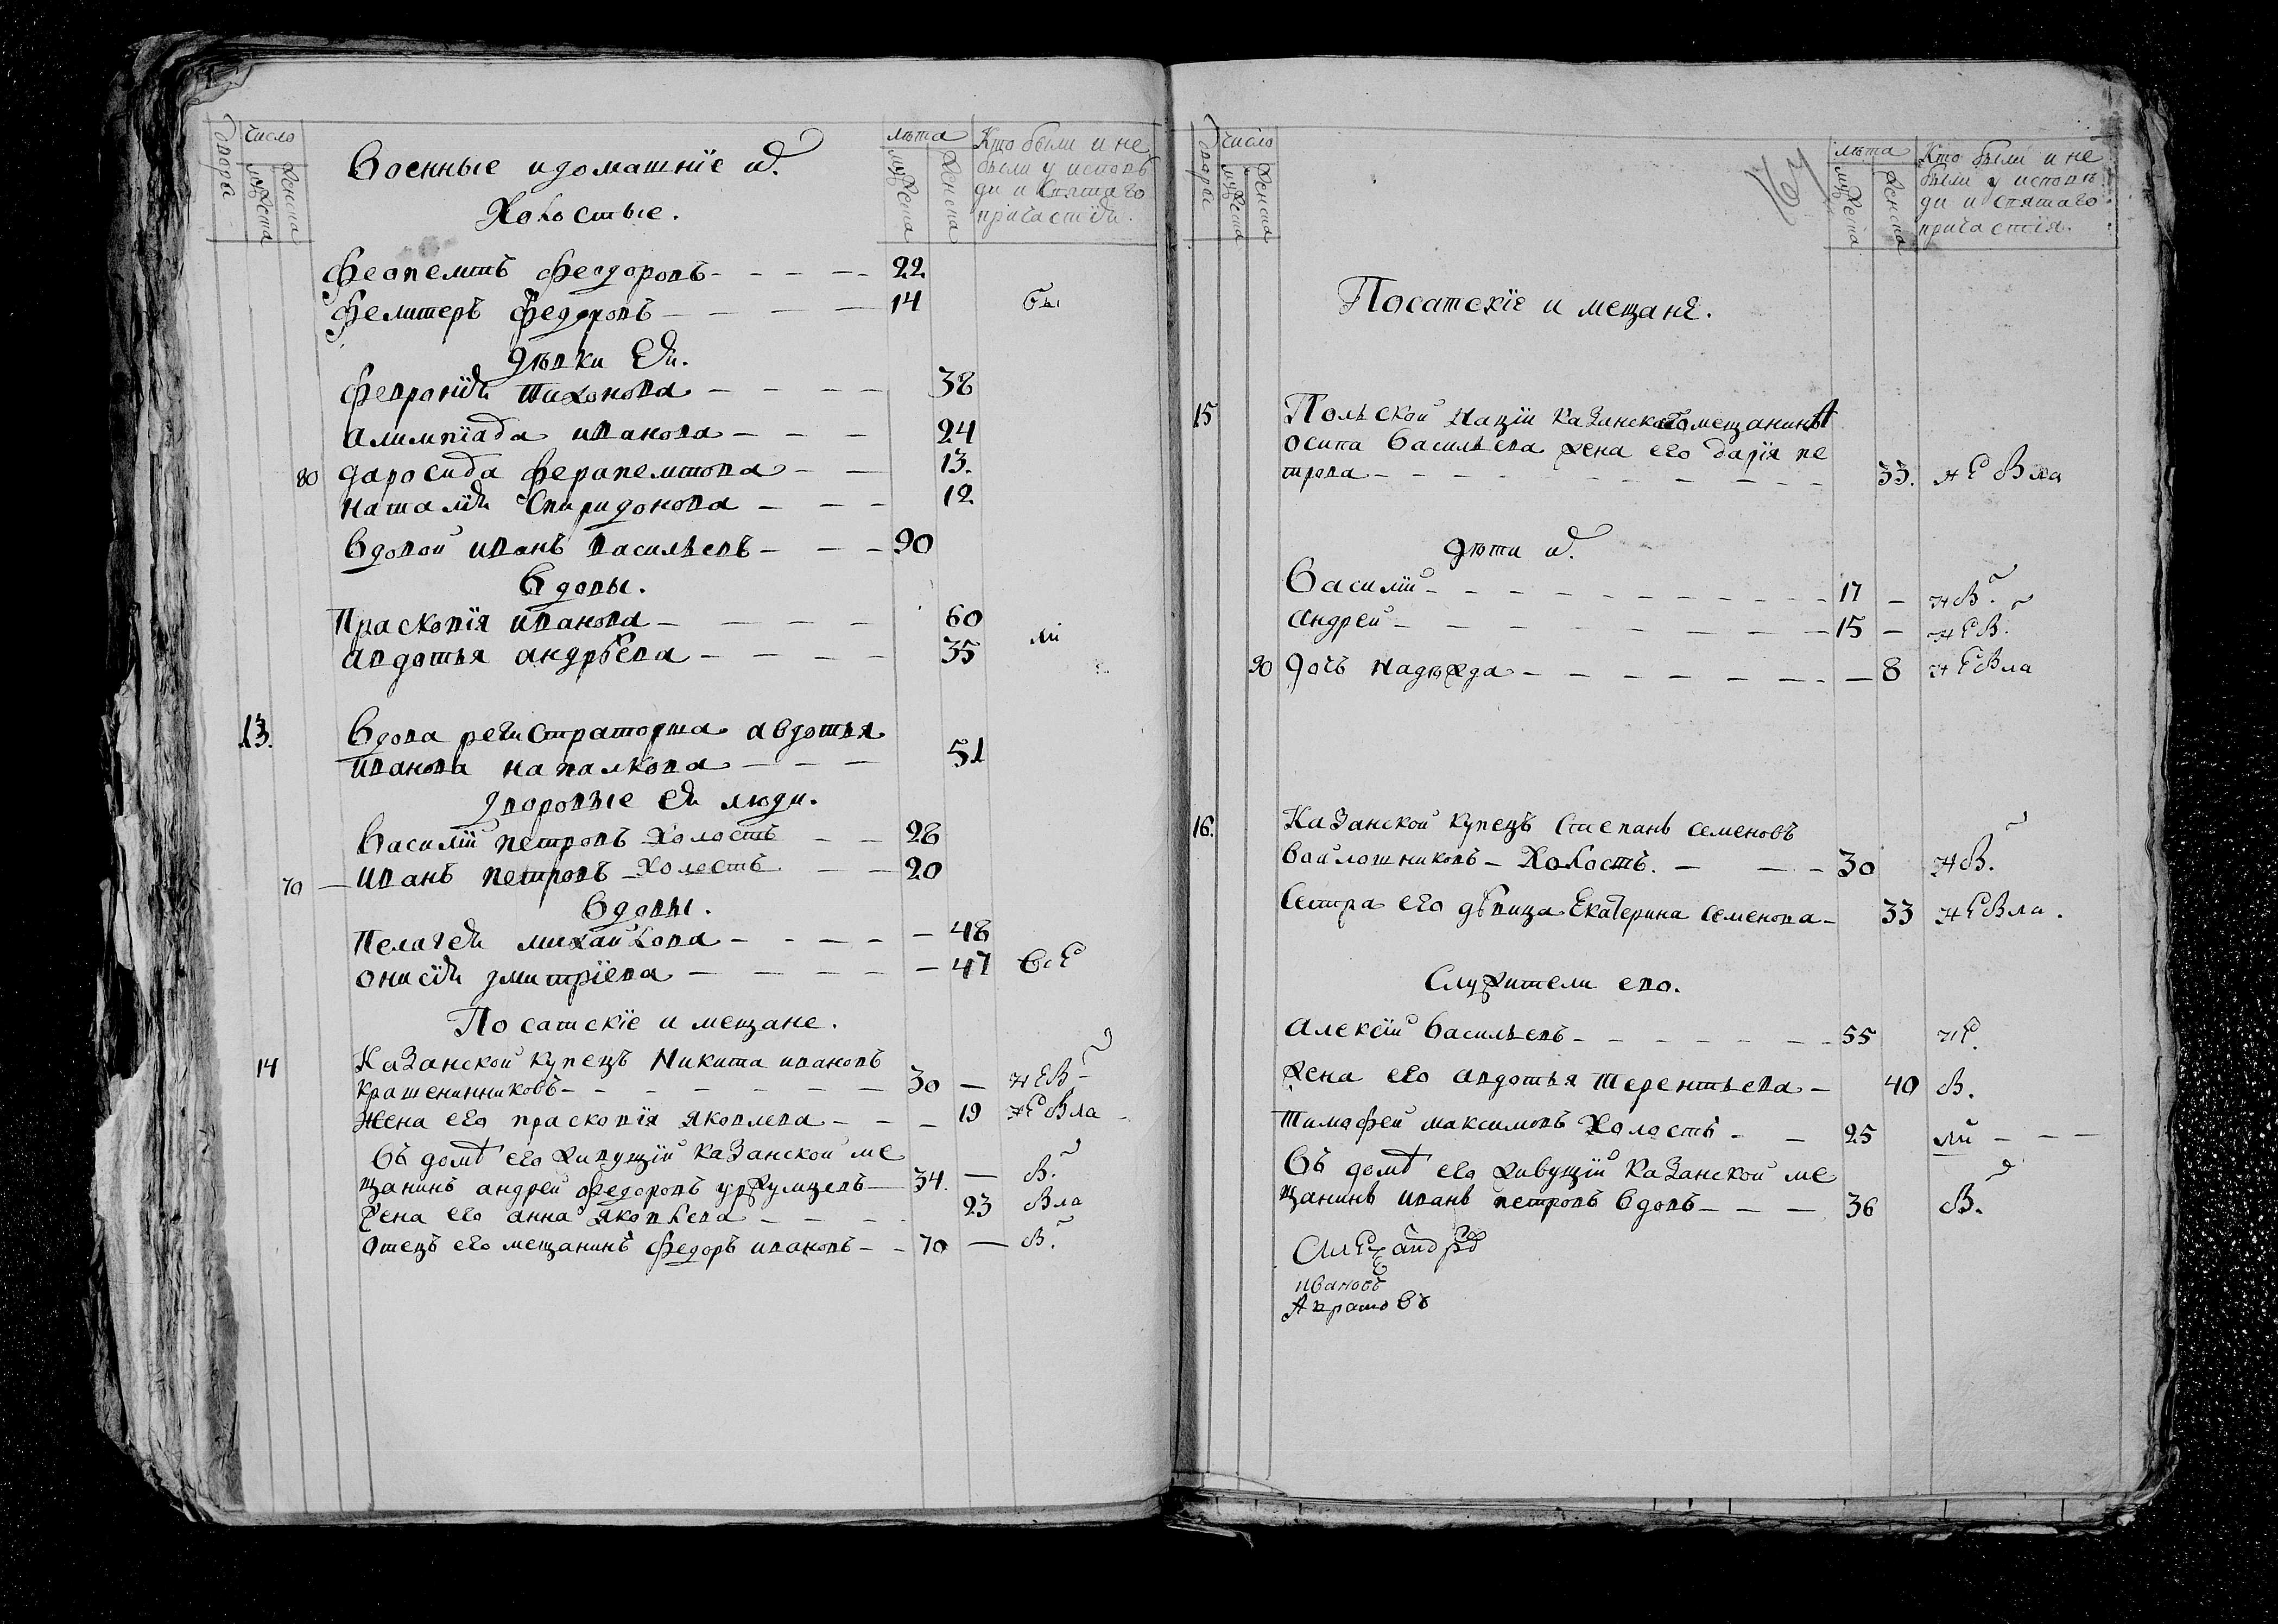 дворы
число
мужеска
женска
Военные и домашнїе их
Холостые.
лѣта
мужеска
женска
Кто были и не
были у исповѣ
ди и святаго
причастїя.
Ферапемтъ Феодоровъ 22
Федоровъ 14 бы
Дѣвки ея.
Февронїя Тихонова 38
Алимпїада Иванова 24
80 Даросида Ферапемтова 13.
Наталїя Спиридонова 12
Вдовой Иванъ Васильевъ 90
Вдовы.
Прасковїя Иванова 60
Авдотья Андрѣева 35 ли
13. Вдова регистраторша Авдотья
Иванова Напалкова 51
дворовые ея люди.
Василїй Петровъ холостъ 28
70 Иванъ Петровъ холостъ 20
Вдовы.
Пелагея Михайлова 48
Онисїя Дмитрїева 47 все
Посатскїе и мещане.
14 Казанской купецъ Никита Ивановъ
Крашенинниковъ 30 не в
Жена его Прасковїя Яковлева 19 не вла
Въ домѣ его живущїй казанской ме
щанинъ Андрей Федоровъ Уржумцевъ 34. в.
Жена его Анна Яковлева 23 вла
Отецъ его мещанинъ Федоръ Ивановъ 70 в.
дворы
число
мужеска
женска
лѣта
мужеска
женска
Кто были и не
были у исповѣ
ди и святаго
причастїя.
Посатскїе и мещанѣ.
15 Польской нацїи казанскаго мещанина
Осипа Васильева жена его Дарїя Пе
трова 33. не вла
дѣти их
Василїй 17 н в.
Андрей 15 не в.
90 Дочь Надѣжда 8 не вла
16. Казанской купецъ Степанъ Семеновъ
Войлошниковъ Холостъ. 30 н в.
Сестра его дѣвица Екатерина Семенова 33 не вла.
Служители ево.
Алексїй Васильевъ 55 не
Жена его Авдотья Терентьева 40 в.
Тимофей Максимовъ Холостъ 25 ли
Въ домѣ его живущїй казанской ме
щанинъ Иванъ Петровъ вдовъ 36 в.
Ивановъ